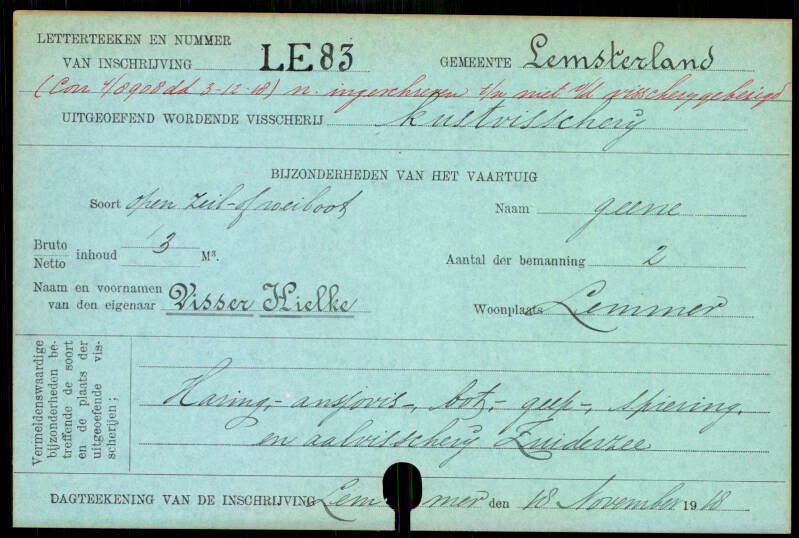 LETTERTEEKEN EN NUMMER
VAN INSCHRIJVING LE 83 GEMEENTE Lemsterland
(Corr 4/0908 dd 3-12-18) n. ingeschreven t/n niet v/d visscherij gebezigd
UITGEOEFEND WORDENDE VISSCHERIJ kustvisscherij
BIJZONDERHEDEN VAN HET VAARTUIG
Soort open zeil- of roeiboot Naam geene
Bruto
Netto inhoud 3 M³. Aantal der bemanning 2
Naam en voornamen
van den eigenaar Visser Hielke Woonplaats Lemmer
Vermeldenswaardige
bijzonderheden be-
treffende de soort
en de plaats der
uitgeoefende vis-
scherijen;
Haring,- ansjovis-, bot,- geep-, spiering,
en aalvisscherij Zuiderzee
DAGTEEKENING VAN DE INSCHRIJVING Lemmer den 18 November 1918